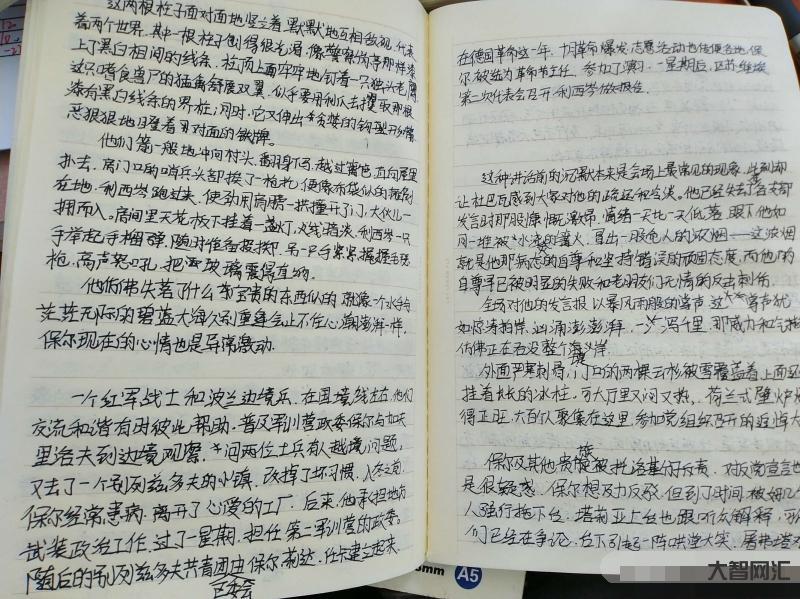 这两根柱子面对面地竖立着,默默地互相敌视,代表
着两个世界。其中一根柱子刨得很光滑,像警察岗亭那样漆
上了黑白相间的线条,柱顶上面牢牢地钉着一只独头老鹰
这只嗜食尸的猛禽舒展双翼,似乎要用利爪去攫取那根
漆有黑白线条的界桩;同时,它又伸出贪婪的钩型
恶狠狠地盯着对面的铁牌。
他们箭一般地冲向村头,翻身下马,越过篱笆,直向屋里
扑去。房门口的哨兵头部挨了一枪托,便像布袋似的
在地。利西岑跑过来,使劲用肩膀一拱撞开了门,大伙儿一
拥而入。房间里天花板下挂着一盏灯,火线暗淡,利西岑一只
手举起手榴弹,随时准备投掷,另一只手紧紧握着毛瑟
枪,高声怒吼,把玻璃震得直响。
他仿佛失落了什么宝贵的东西似的,就像一个水手与
茫茫无际的碧蓝大海久别重逢会止不住心潮澎湃一样,
保尔现在的心情也是异常激动。
一个红军战士和波兰边境兵,在国境线左右,他们
交流和谐有时彼此帮助。普及军训营政委保尔与如夫
里洛夫到边境观察,问两位士兵有人越境问题,
又去了一个别列兹多夫的小镇,改掉了坏习惯,入冬之前
保尔经常患病,离开了心爱的工厂。后来,他承担地方
武装政治工作。过了一星期,担任第二军训营的政委。
随后的别列兹多夫共青团由保尔
区委会
在德国革命这一年,十月革命爆发,志愿活动也传便各地,保
尔被选为革命书主任,参加了演习。一星期后,区苏维埃
第二次代表会召开,利西岑做报告。
这种讲话前的沉默本来是会场上最常见的现象,此刻却
让杜巴瓦感到大家对他的疏远和冷淡。他已经失去了在支部
发言时那股慷慨激昂,情绪一天比一天低落,眼下他如
同一堆被水浇的篝火,冒出一股危人的浓烟——这浓烟
就是他那病态的自尊和坚持错误的顽固态度,而他的
自尊早已被明显的失败和老朋友们无情的反击刺伤。
全场对他的发言报以暴风雨般的掌声,这掌声犹
如惊涛拍岸,汹涌澎湃,一泻千里,那威力和气
仿佛正在吞没整个海岸。
外面严寒刺骨,门口的两棵云杉被雪覆盖着上面还
挂着长长的冰柱。可大厅里又闷又热,荷兰式壁炉烧
得正旺,六百人聚集在这里,参加党组织召开的追悼大
保尔及其他贵族被托洛基的斥责,对反南宣言也
是很疑惑。保尔想极力反驳,但到了时间,被
人强行拖下台。塔莉亚上台也跟听众解释,可
们已经在争论,台下引起一阵哄堂大笑。
A5
大智网汇